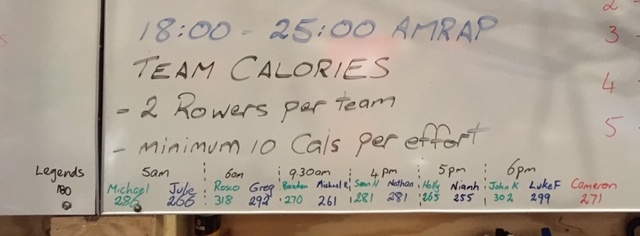 18:00 - 25:00 AMRAP
TEAM CALORIES
- 2 Rowers per team
- minimum 10 Cals per effort
2
3
4
5
Legends
180
5am 6am 9.30am 4pm 5pm 6pm
Michael Julie Rosco Greg Brendan Michael R Sean H Nathan Holly Niamh John K Luke F Cameron
286 266 318 292 270 261 281 281 265 255 302 299 271